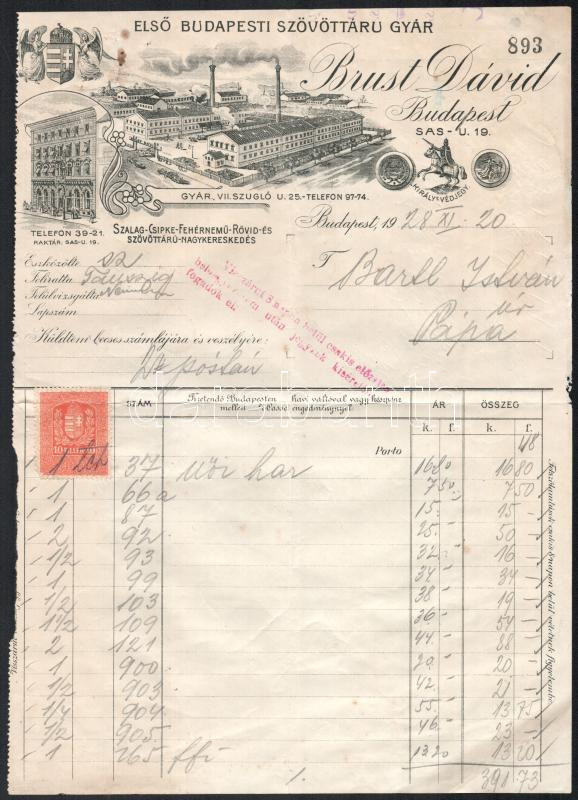 ELSŐ BUDAPESTI SZÖVÖTTÁRU GYÁR
893
Brust Dávid
Budapest
SAS-U. 19.
KIRÁLY VÉDJEGY
GYÁR, VII. SZUGLÓ U. 25.-TELEFON 97-74.
TELEFON 39-21.
RAKTÁR. SAS-U. 19.
SZALAG-CSIPKE-FEHÉRNEMŰ-RÖVID-ÉS
SZÖVÖTTÁRÚ-NAGYKERESKEDÉS
Budapest, 19 28 XI. 20
Eszközölte
Feliratta Taussig
Felülvizsgálta
Lapszám
T Bartl István
úr
Pápa
Visszárut 8 napon belül csakis előzetes
fogadok el.
Küldtem becses számlájára és veszélyére:
postán
10 FILLÉR
SZÁM
Fizetendő Budapesten havi váltóval vagy készpénz
mellett % Cassa engedménynyel.
ÁR ÖSSZEG
k. f. k. f.
Porto 48
1 37 női har 16 80 16 80
1 66 a 7 50 7 50
1 87 15 – 15 –
2 92 25 – 50 –
1/2 93 32 – 16 –
1 99 34 – 34 –
1/2 103 38 – 19 –
1 1/2 109 36 – 54 –
2 121 44 – 88 –
1 900 20 – 20 –
1/2 903 42 – 21 –
1/4 904 55 – 13 75
1/2 905 46 – 23 –
1 265 ffi 13 20 13 20
391 73
darabanth